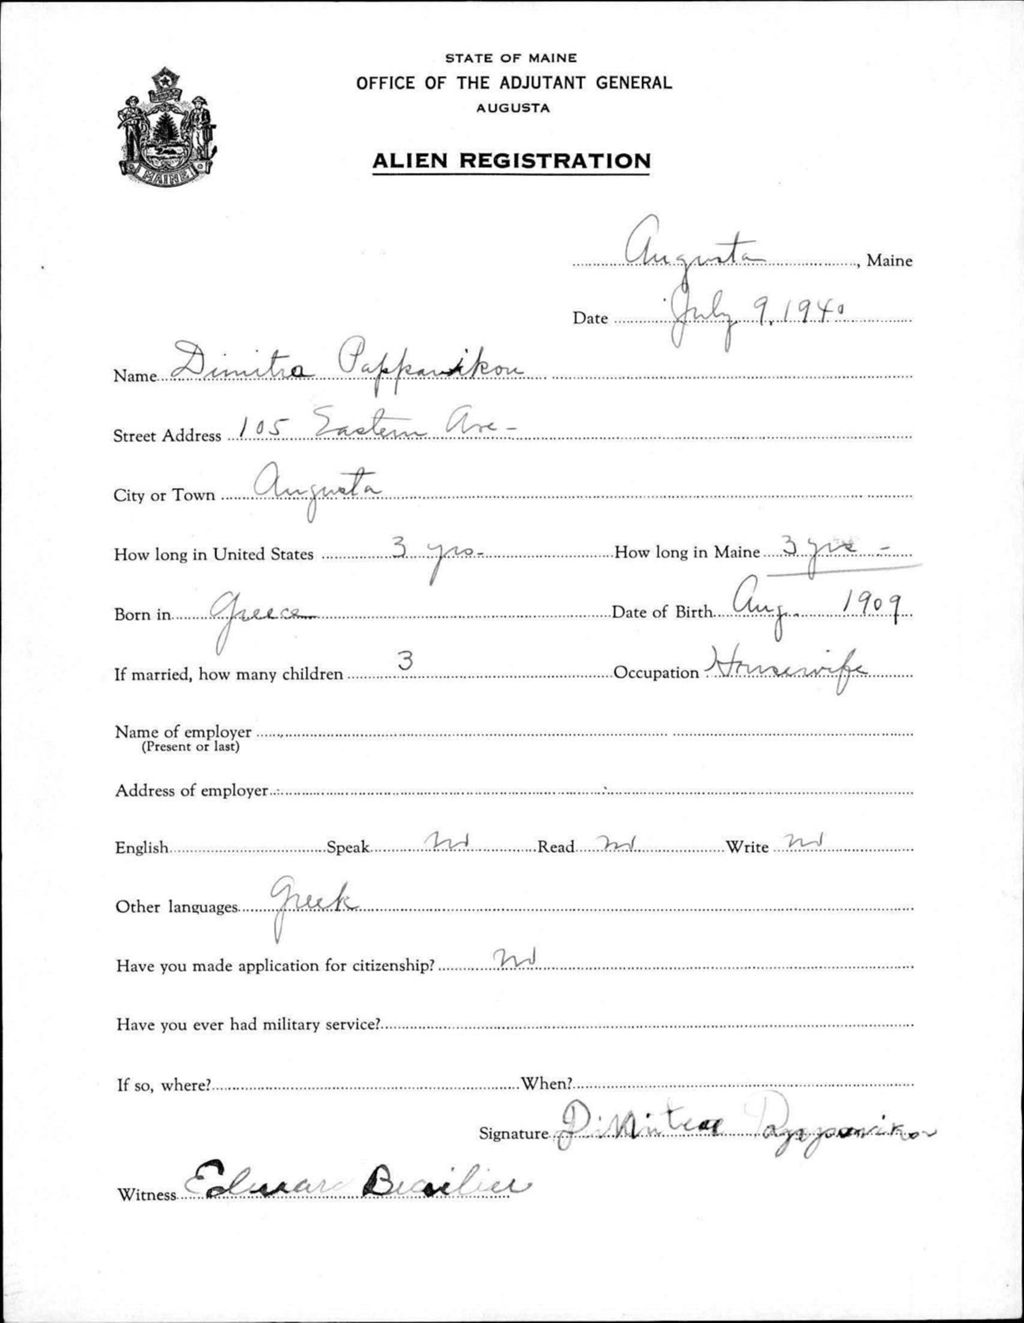 STATE OF MAINE
OFFICE OF THE ADJUTANT GENERAL
AUGUSTA
ALIEN REGISTRATION
MAINE
Augusta, Maine
Date July 9, 1940
Name Dimitra Pappanikou
Street Address 105 Eastern Ave-
City or Town Augusta
How long in United States 3 yrs- How long in Maine 3 yrs -
Born in Greece Date of Birth Aug. 1909
If married, how many children 3 Occupation Housewife
Name of employer
(Present or last)
Address of employer
English Speak No Read No Write No
Other languages Greek
Have you made application for citizenship? No
Have you ever had military service?
If so, where? When?
Signature Dimitra
Witness Edward